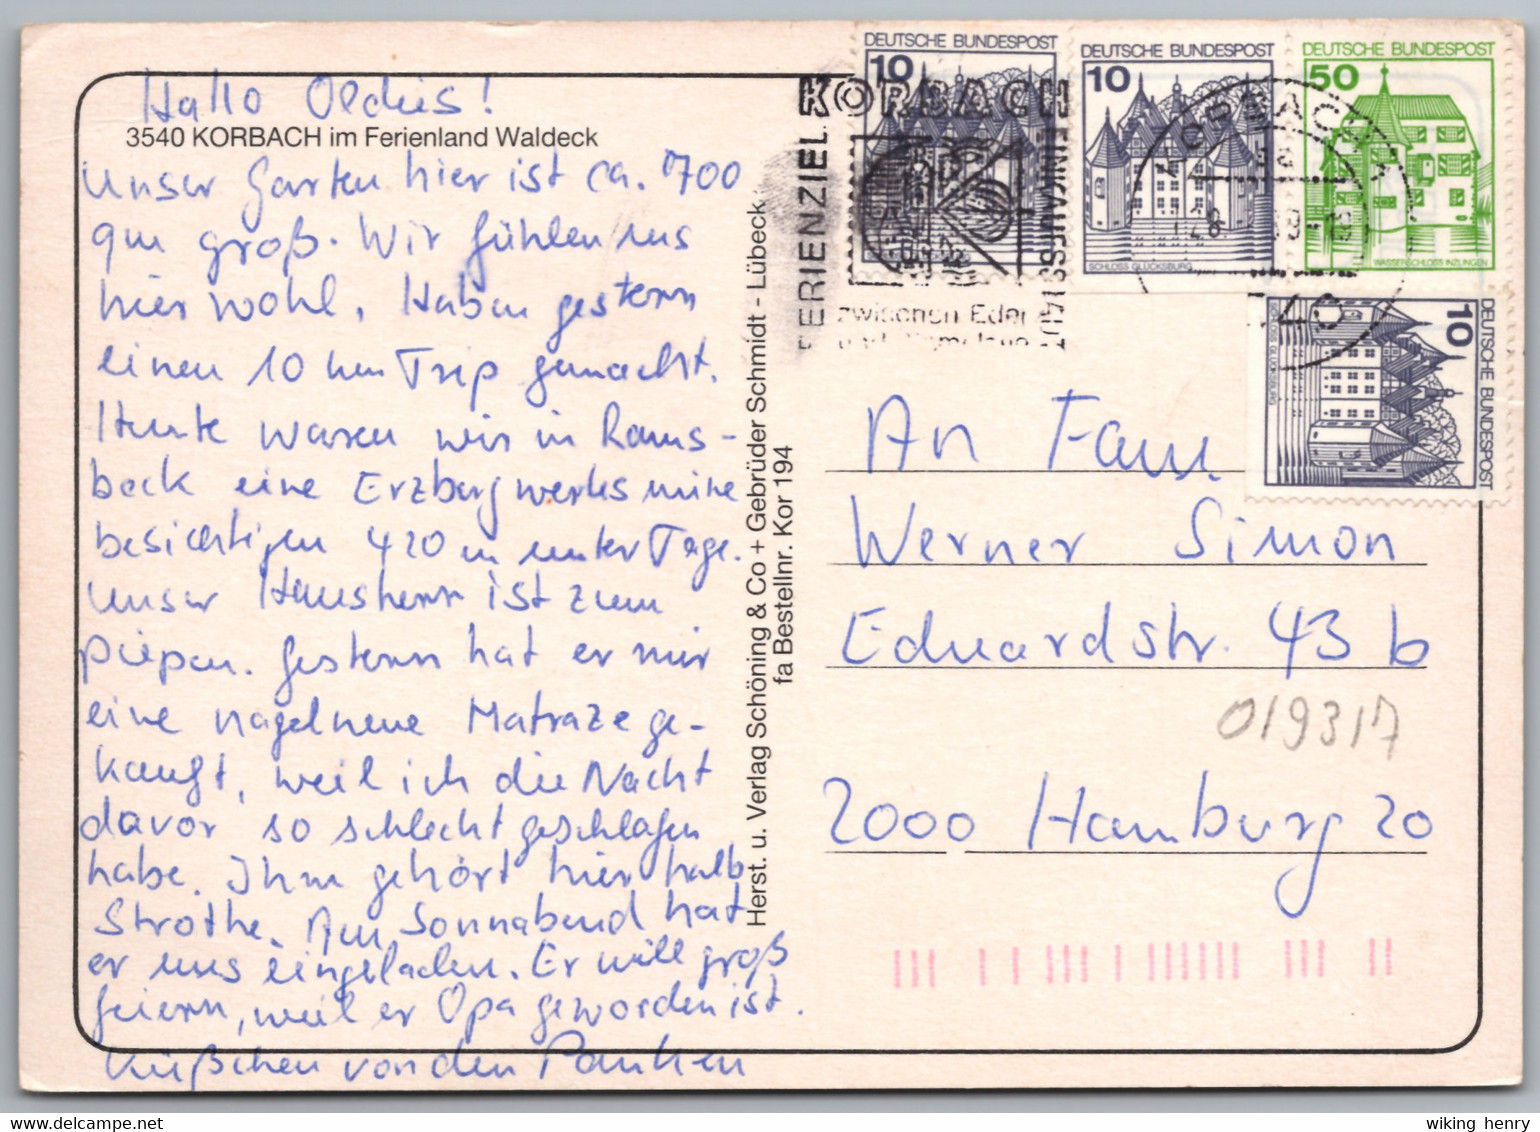 Hallo Oldies!
3540 KORBACH im Ferienland Waldeck
Unser Garten hier ist ca. 700
qm groß. Wir fühlen uns
hier wohl. Haben gestern
einen 10 km Trip gemacht.
Heute waren wir in Rams-
beck eine Erzbergwerksmine
besichtigen 420 m unter Tage.
Unser Hausherr ist zum
piepen. Gestern hat er mir
eine nagelneue Matraze ge-
kauft, weil ich die Nacht
davor so schlecht geschlafen
habe. Ihm gehört hier halb
Strothe. Am Sonnabend hat
er uns eingeladen. Er will groß
feiern, weil er Opa geworden ist.
Küßchen von den
Herst. u. Verlag Schöning & Co + Gebrüder Schmidt - Lübeck
fa Bestellnr. Kor 194
DEUTSCHE BUNDESPOST
10
DEUTSCHE BUNDESPOST
10
SCHLOSS GLÜCKSBURG
DEUTSCHE BUNDESPOST
50
WASSERSCHLOSS INZLINGEN
DEUTSCHE BUNDESPOST
10
KORBACH
FERIENZIEL
EINKAUFSSTADT
zwischen Eder
KORBACH
An Fam.
Werner Simon
Eduardstr. 43 b
019317
2000 Hamburg 20
wiking henry